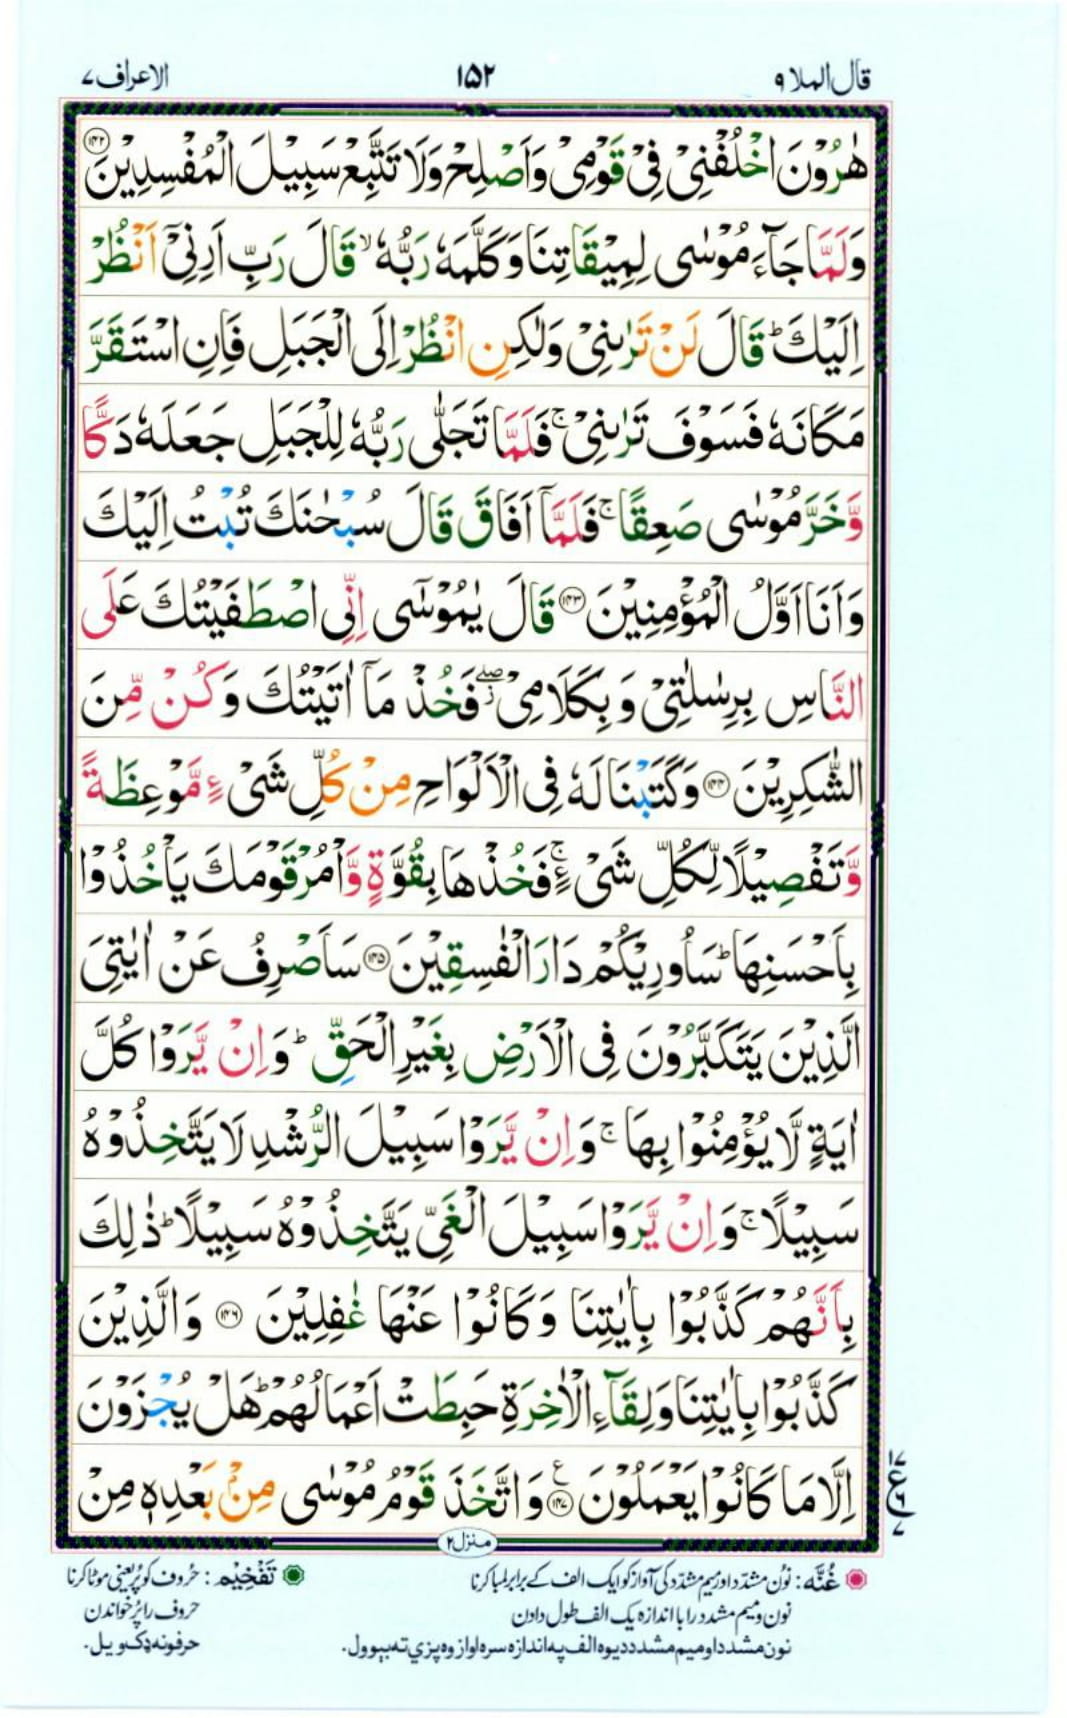 قال الملا ۹
۱۵۲
الاعراف ۷
هٰرُوْنَ اخْلُفْنِیْ فِیْ قَوْمِیْ وَاَصْلِحْ وَلَا تَتَّبِعْ سَبِیْلَ الْمُفْسِدِیْنَ ۱۴۲
وَلَمَّا جَآءَ مُوْسٰی لِمِیْقَاتِنَا وَكَلَّمَهٗ رَبُّهٗ ۙ قَالَ رَبِّ اَرِنِیْۤ اَنْظُرْ
اِلَیْكَ ؕ قَالَ لَنْ تَرٰىنِیْ وَلٰكِنِ انْظُرْ اِلَی الْجَبَلِ فَاِنِ اسْتَقَرَّ
مَكَانَهٗ فَسَوْفَ تَرٰىنِیْ ۚ فَلَمَّا تَجَلّٰی رَبُّهٗ لِلْجَبَلِ جَعَلَهٗ دَكًّا
وَّخَرَّ مُوْسٰی صَعِقًا ۚ فَلَمَّاۤ اَفَاقَ قَالَ سُبْحٰنَكَ تُبْتُ اِلَیْكَ
وَاَنَا اَوَّلُ الْمُؤْمِنِیْنَ ۱۴۳ قَالَ یٰمُوْسٰۤی اِنِّی اصْطَفَیْتُكَ عَلَی
النَّاسِ بِرِسٰلٰتِیْ وَ بِكَلَامِیْ ۖز فَخُذْ مَاۤ اٰتَیْتُكَ وَكُنْ مِّنَ
الشّٰكِرِیْنَ ۱۴۴ وَكَتَبْنَا لَهٗ فِی الْاَلْوَاحِ مِنْ كُلِّ شَیْءٍ مَّوْعِظَةً
وَّتَفْصِیْلًا لِّكُلِّ شَیْءٍ ۚ فَخُذْهَا بِقُوَّةٍ وَّاْمُرْ قَوْمَكَ یَاْخُذُوْا
بِاَحْسَنِهَا ؕ سَاُورِیْكُمْ دَارَ الْفٰسِقِیْنَ ۱۴۵ سَاَصْرِفُ عَنْ اٰیٰتِیَ
الَّذِیْنَ یَتَكَبَّرُوْنَ فِی الْاَرْضِ بِغَیْرِ الْحَقِّ ؕ وَاِنْ یَّرَوْا كُلَّ
اٰیَةٍ لَّا یُؤْمِنُوْا بِهَا ۚ وَاِنْ یَّرَوْا سَبِیْلَ الرُّشْدِ لَا یَتَّخِذُوْهُ
سَبِیْلًا ۚ وَاِنْ یَّرَوْا سَبِیْلَ الْغَیِّ یَتَّخِذُوْهُ سَبِیْلًا ؕ ذٰلِكَ
بِاَنَّهُمْ كَذَّبُوْا بِاٰیٰتِنَا وَكَانُوْا عَنْهَا غٰفِلِیْنَ ۱۴۶ وَالَّذِیْنَ
كَذَّبُوْا بِاٰیٰتِنَا وَلِقَآءِ الْاٰخِرَةِ حَبِطَتْ اَعْمَالُهُمْ ؕ هَلْ یُجْزَوْنَ
اِلَّا مَا كَانُوْا یَعْمَلُوْنَ ۱۴۷ ع وَاتَّخَذَ قَوْمُ مُوْسٰی مِنْۢ بَعْدِهٖ مِنْ
۱۷
ع
۶
۷
منزل ۲
غُنَّه : نوُن مشدّد اور میم مشدّد کی آواز کو ایک الف کے برابر لمبا کرنا
نون و میم مشدد را با اندازه یک الف طول دادن
نون مشدد او میم مشدد دیوه الف په اندازه سره اواز وه پزي ته بېوول.
تَفْخِیْم : حُروف کو پُر یعنی موٹا کرنا
حروف را پُر خواندن
حرفونه ډک ویل.